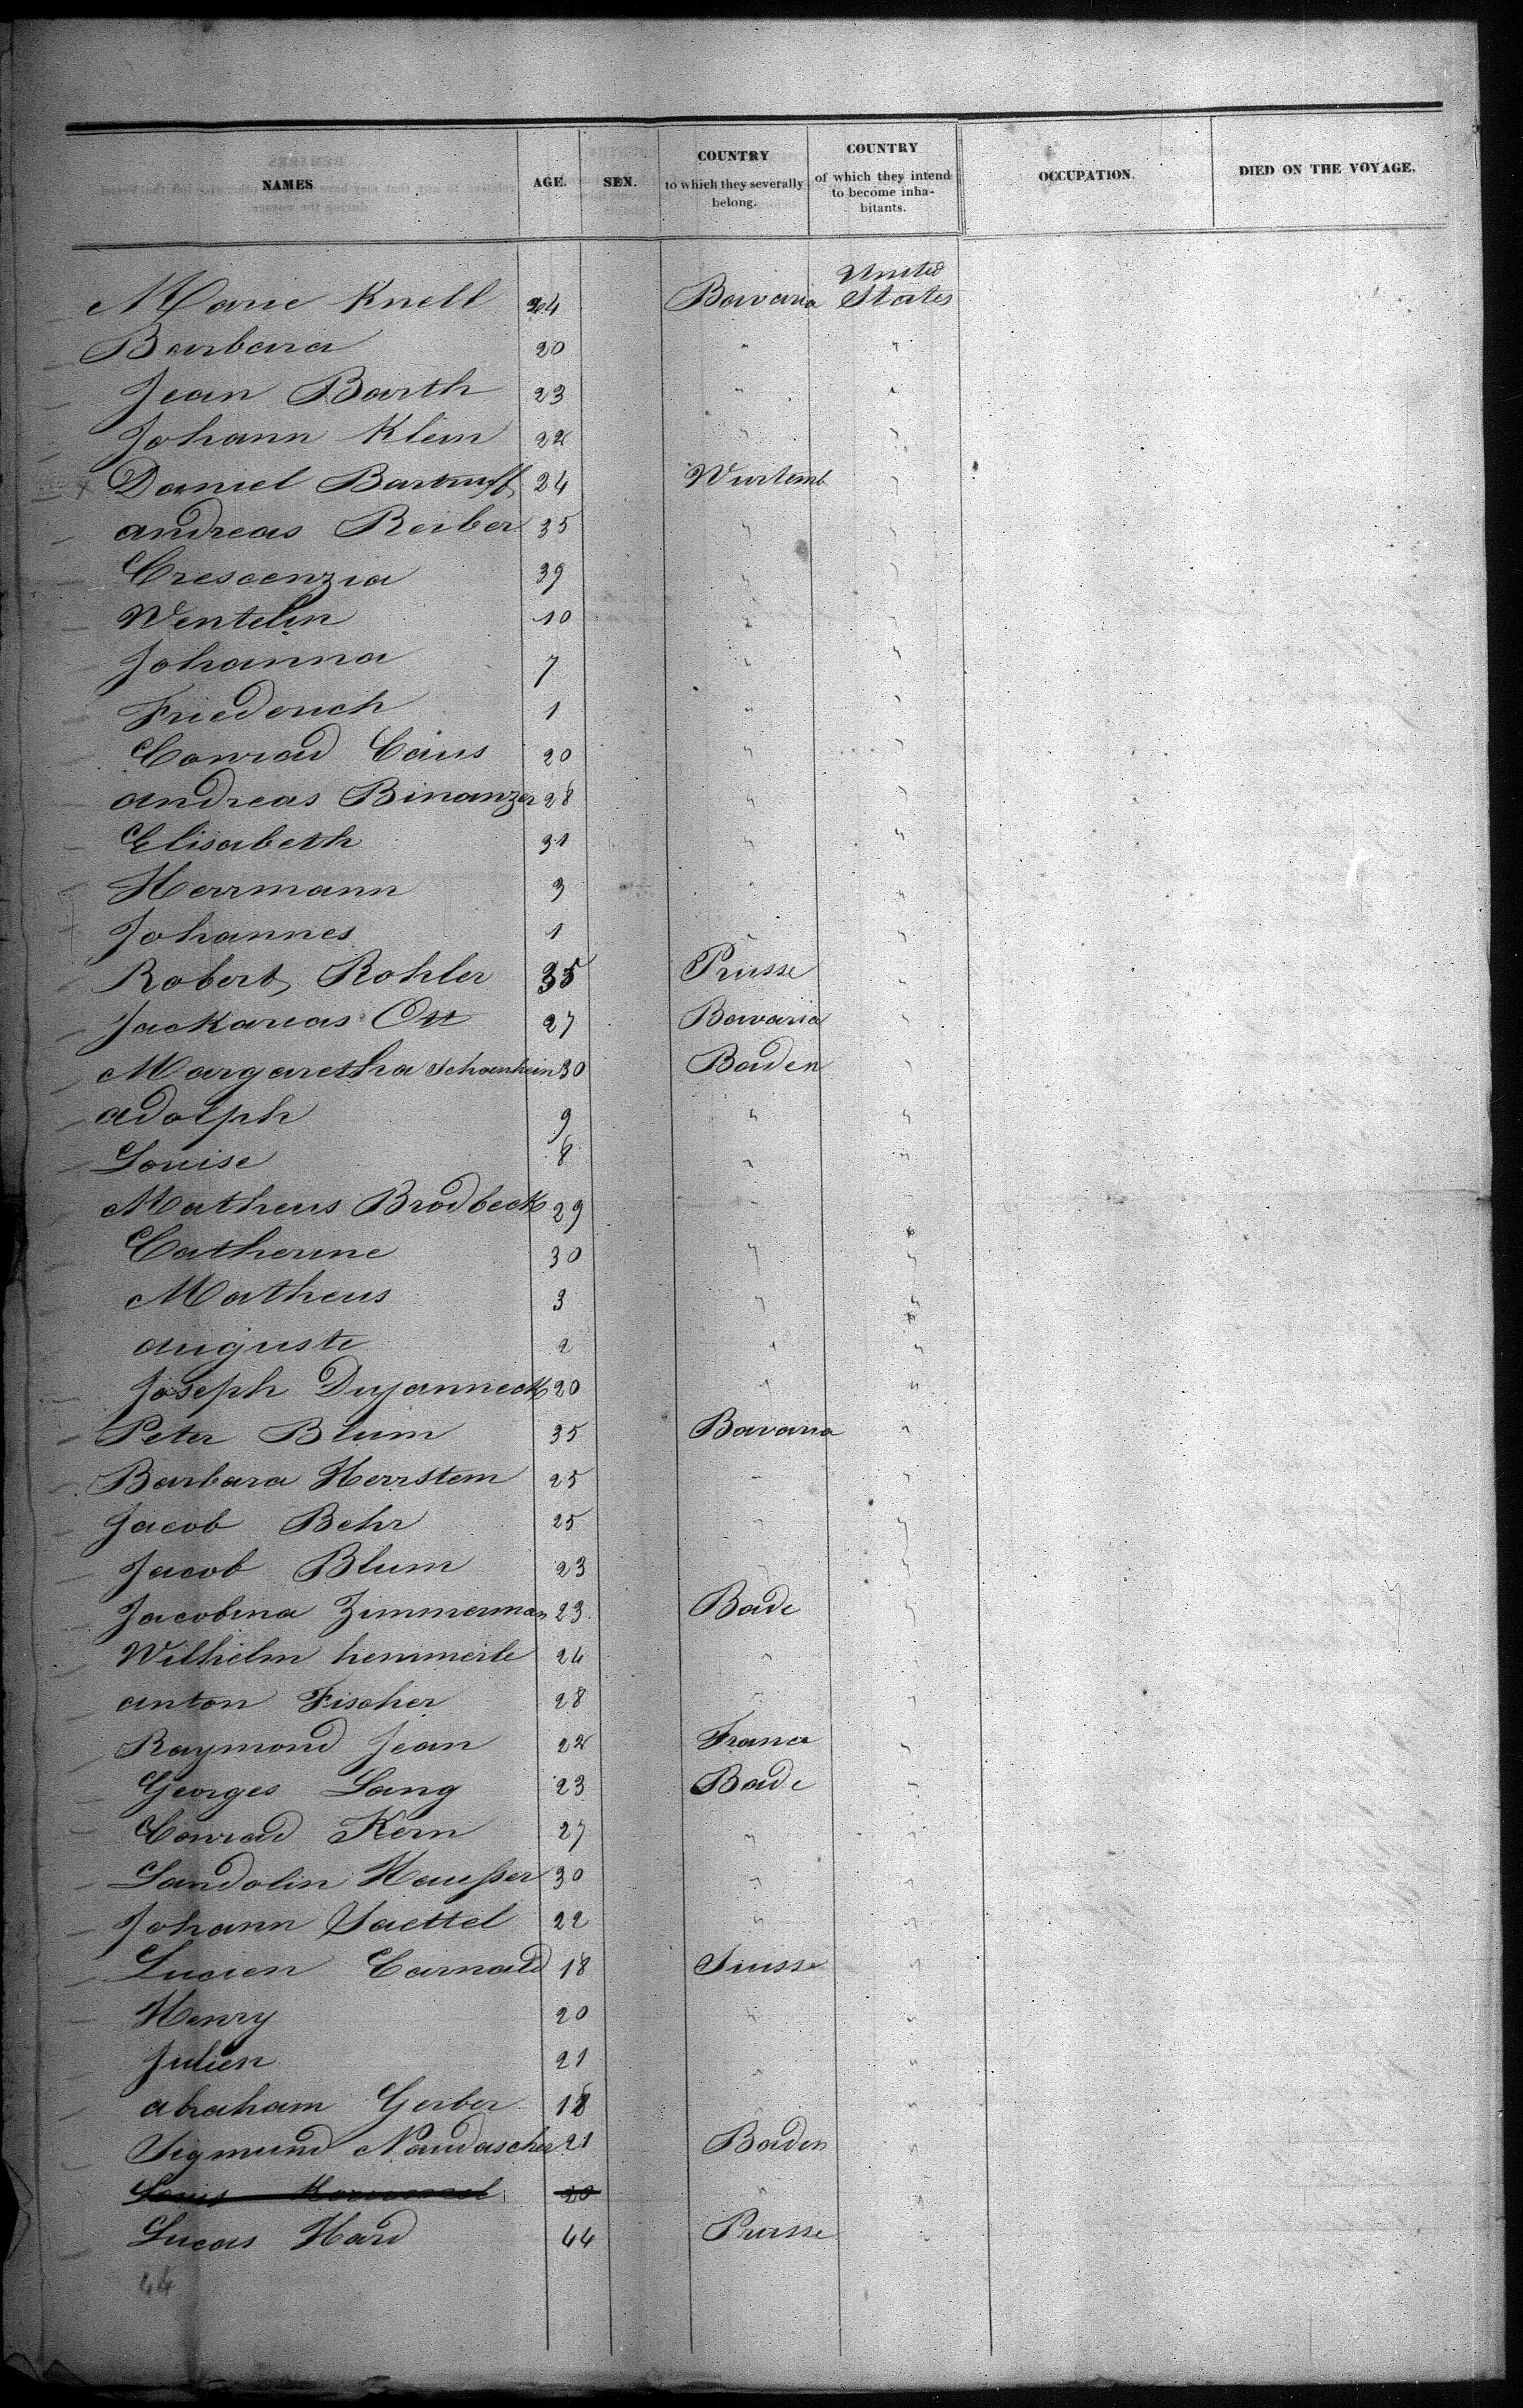 NAMES AGE. SEX. COUNTRY to which they severally belong. COUNTRY of which they intend to become inhabitants. OCCUPATION. DIED ON THE VOYAGE.
United
Marie Knell 24 Bavaria States
Barbara 20 " "
Jean Barth 23 " "
Johann Klein 22 " "
Daniel Bartruff 24 Wurtemb "
Andreas Reiber 35 " "
Crescenzia 39 " "
Wentelin 10 " "
Johanna 7 " "
Friederich 1 " "
Conrad Caus 20 " "
Andreas Binanzer 28 " "
Elisabeth 31 " "
Herrmann 3 " "
Johannes 1 " "
Robert Rohler 35 Prusse "
Jackarias Ott 27 Bavaria "
Margaretha Schoenhein 30 Baden "
Adolph 9 " "
Louise 8 " "
Matheus Brodbeck 29 "
Catherine 30 " "
Matheus 3 " "
Auguste 2 " "
Joseph Dujanneck 20 " "
Peter Blum 35 Bavaria "
Barbara Herrstein 25 " "
Jacob Behr 25 " "
Jacob Blum 23 " "
Jacobina Zimmerman 23 Bade "
Wilhelm hemmerle 24 " "
Anton Fischer 28 " "
Raymond Jean 22 France "
Georges Lang 23 Bade "
Conrad Kern 27 " "
Landolin Hausser 30 " "
Johann Saettel 22 " "
Lucien Carnald 18 Suisse "
Henry 20 " "
Julien 21 " "
Abraham Gerber 18 " "
Sigmund Naudascher 21 Baden "
Louis 20 " "
Lucas Hard 44 Prusse "
44